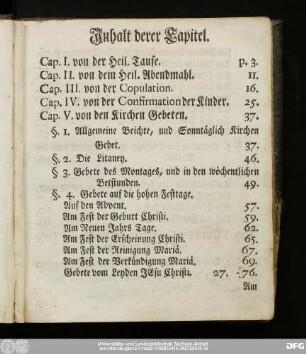 Inhalt derer Capitel.
Cap. I. von der Heil. Taufe. p. 3.
Cap. II. von dem Heil. Abendmahl. 11.
Cap. III. von der Copulation. 16.
Cap. IV. von der Confirmation der Kinder. 25.
Cap. V. von den Kirchen Gebeten. 37.
§. 1. Allgemeine Beichte, und Sonntäglich Kirchen
Gebet. 37.
§. 2. Die Litaney. 46.
§ 3. Gebete des Montages, und in den wöchentlichen
Betstunden. 49.
§. 4. Gebete auf die hohen Festtage.
Auf den Advent. 57.
Am Fest der Geburt Christi. 59.
Am Neuen Jahrs Tage. 62.
Am Fest der Erscheinung Christi. 65.
Am Fest der Reinigung Mariä. 67.
Am Fest der Verkündigung Mariä. 69.
Gebete vom Leyden JEsu Christi. 27. - 76.
Am
Universitäts- und Landesbibliothek Sachsen-Anhalt
DFG